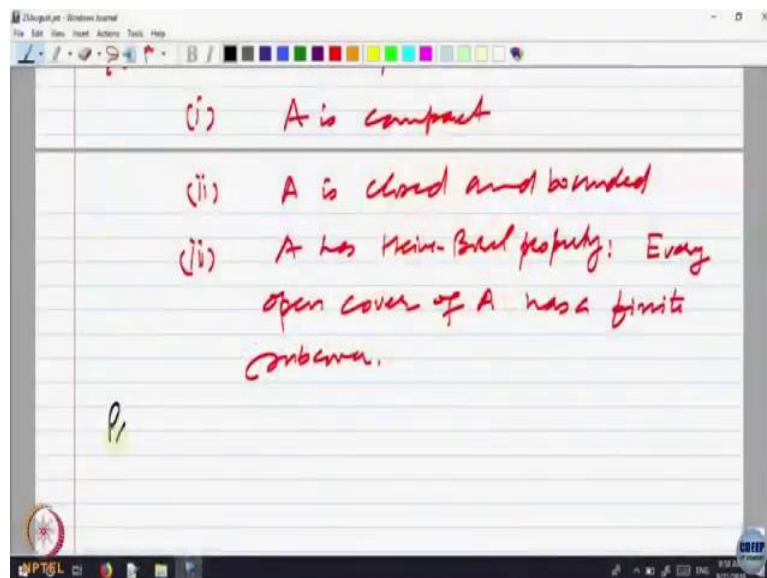 23August.jnt - Windows Journal
File Edit View Insert Actions Tools Help
(i) A is compact
(ii) A is closed and bounded
(iii) A has Heine-Borel property: Every
open cover of A has a finite
subcover.
Pr
NPTEL
CDEEP
ENG